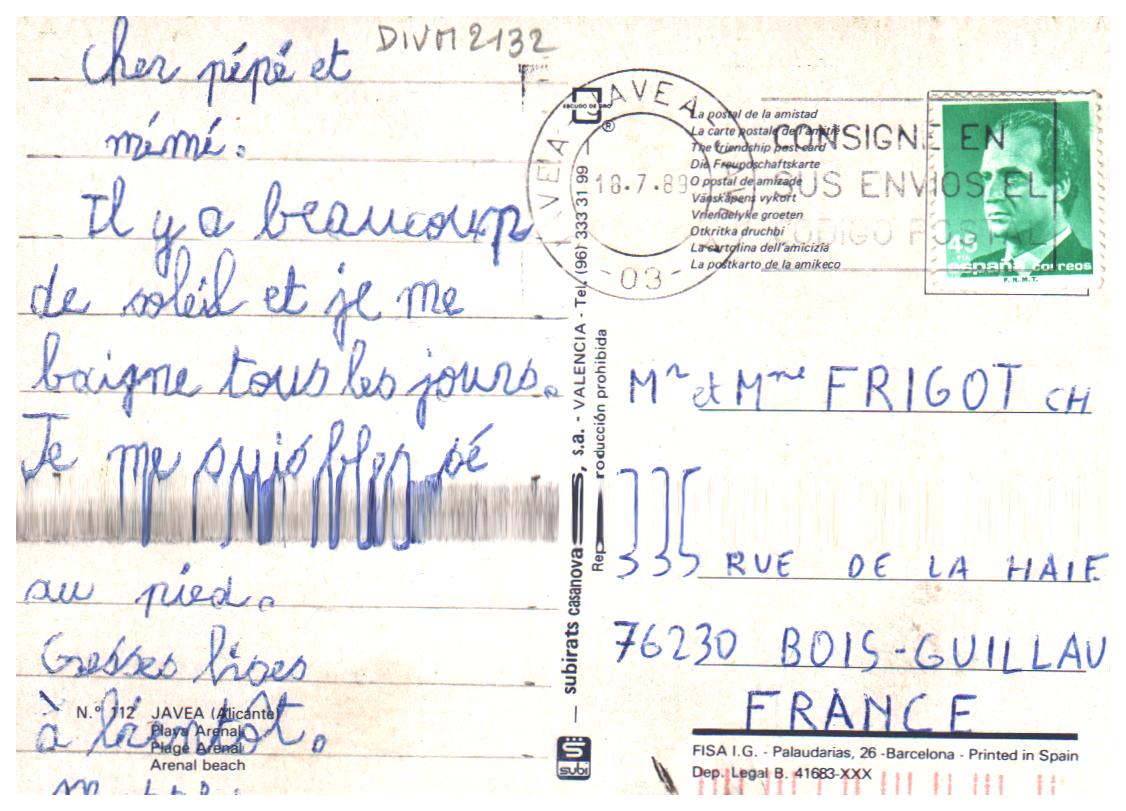 DIVM2132
Cher pépé et
mémé.
Il y a beaucoup
de soleil et je me
baigne tous les jours.
Je me suis blessé
au pied.
Grosses bises
à bientôt.
N.° 112 JAVEA (Alicante)
Playa Arenal
Plage Arenal
Arenal beach
subi
— subirats casanovas, s.a. - VALENCIA - Tel. (96) 333 31 99 —
Reproducción prohibida
ESCUDO DE ORO
®
JAVEA - JAVEA
18.7.89
- 03 -
CONSIGNE EN
SUS ENVIOS EL
CODIGO POSTAL
La postal de la amistad
La carte postale de l'amitié
The friendship post card
Die Freundschaftskarte
O postal de amizade
Vänskapens vykort
Vriendelyke groeten
Otkritka druchbi
La cartolina dell'amicizia
La postkarto de la amikeco
45
PTA
españa correos
F.N.M.T.
Mr et Mme FRIGOT CH
335 RUE DE LA HAIE
76230 BOIS-GUILLAU
FRANCE
FISA I.G. - Palaudarias, 26 -Barcelona - Printed in Spain
Dep. Legal B. 41683-XXX